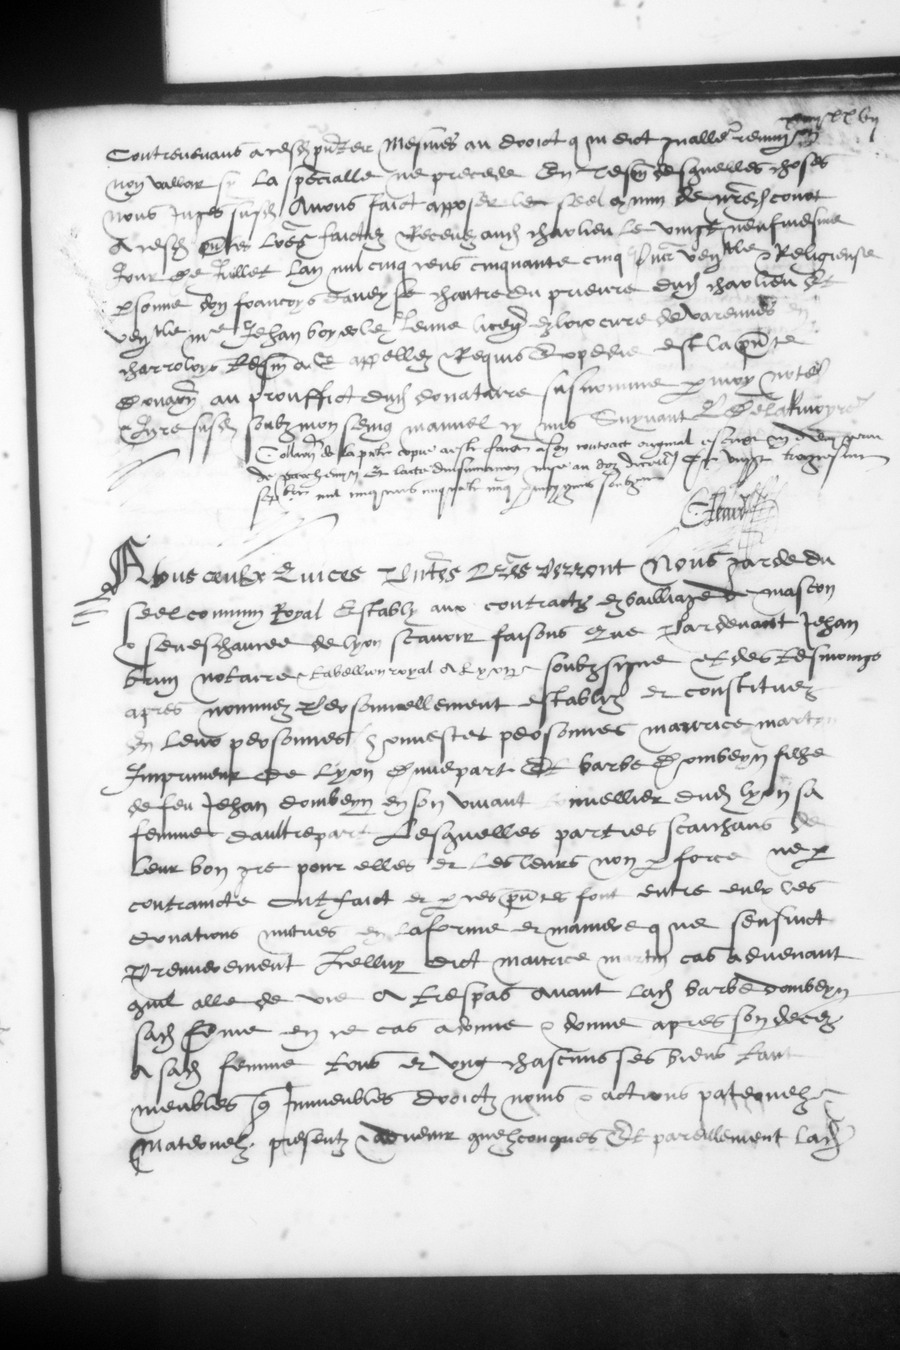 Contrevenans a cesd. presentes mesmes au droict q. ni dict generalle renunciation
non valloir sy la specialle ne precede En tesm. desquelles choses
nous Juges susd. Avons faict apposer le seel commun de nred. court
A cesd. pntes lres faictes Receues aud. charlieu le vingt neufviesme
Jour de Juillet lan mil cinq cens cinquante cinq Pnt venble & Religieuse
psonne don francoys chantre du prieure dud. charlieu Et
venble me Jehan cure de varennes en
charroloys tesm. a ce appellez & Requis Expedie est la pnte
donaon au prouffict dud. donataire susnomme p. moy notere
& Jure susd. soubz mon seing manuel cy mis Suyvant
Collaon de la pnte copie a este faicte a son contract original escript en de peau
de parchemin Et lacte dinsinuation mise au doz dicelluy Ce vingt troysiesme
septbre mil cinq cens cinquante cinq p. moy gref. soubzne
A tous ceulx Qui ces Pntes Lres Verront Nous garde du
seel commun Royal Estably aux contractz es bailliage de mascon
& seneschaucee de lyon scavoir faisons Que Pardevant Jehan
brun notaire & tabellion royal A Lyon soubzsigne et des tesmoings
apres nommez Personnellement establiz et constituez
En leurs personnes honnestes personnes maurice martin
Imprimeur de Lyon dune part Et barbe dombeyn fille
de feu Jehan dombeyn en son vivant dud. lyon sa
femme daultre part Lesquelles parties scaichans de
leur bon gre pour elles et les leurs non p. force ne p.
contraincte ont faict et p. ces pntes font entre eulx les
donations mutues en la forme et maniere que sensuict
Premierement Icelluy dict maurice martin cas advenant
quil alle de vie A trespas avant lad. barbe dombeyn
sad. femme en ce cas a donne & donne apres son deces
A sad. femme tous et ung chascuns ses biens tant
meubles q. Immeubles droictz noms & actions paternelz
Maternelz presentz & advenir quelzconques Et pareillement lad.